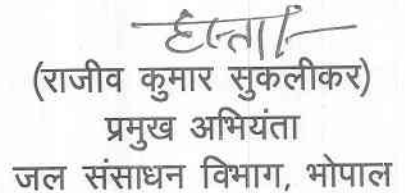 हस्ता/-
(राजीव कुमार सुकलीकर)
प्रमुख अभियंता
जल संसाधन विभाग, भोपाल